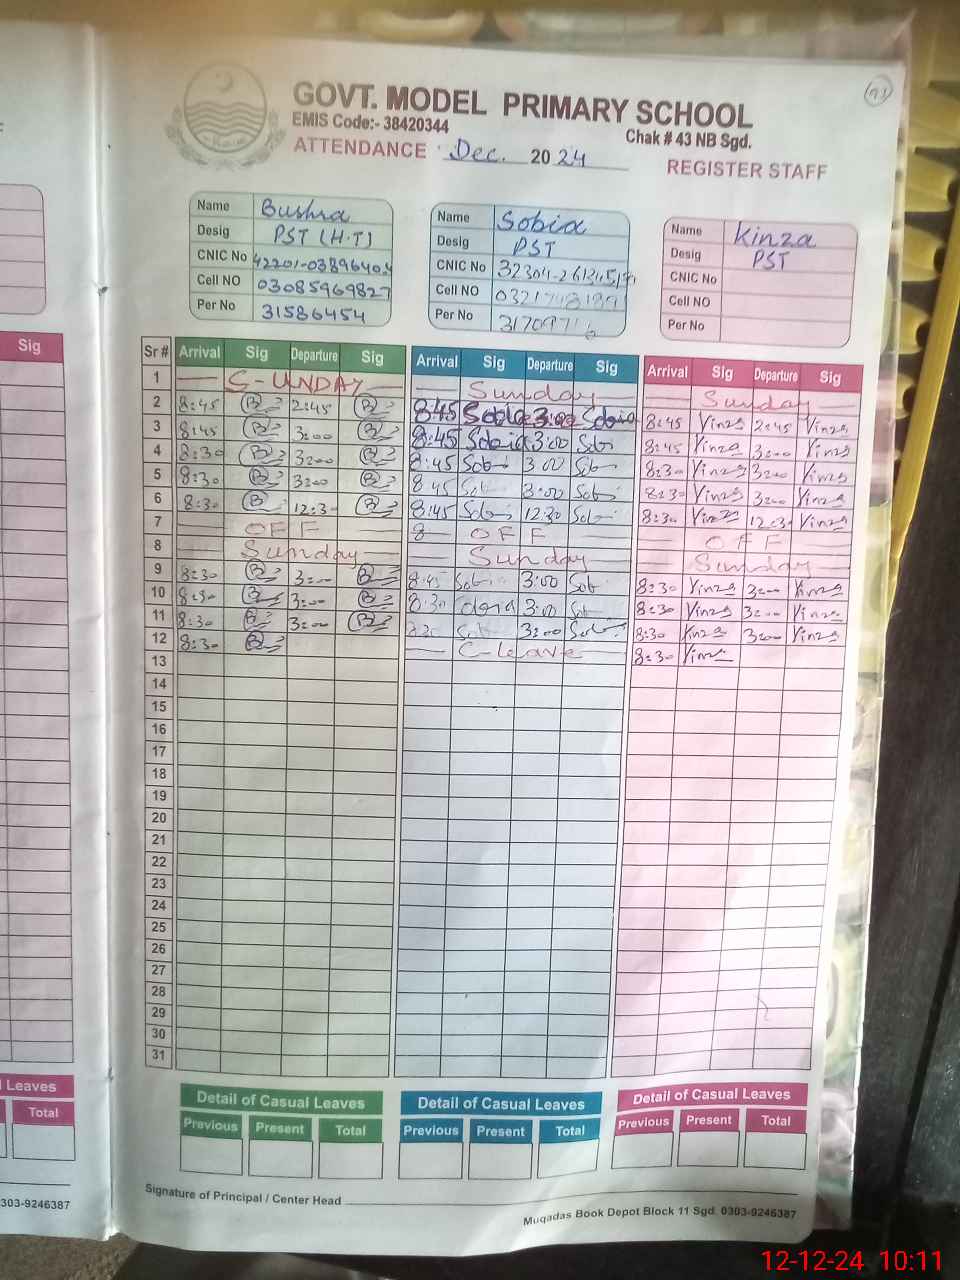 GOVT. MODEL PRIMARY SCHOOL
EMIS Code:- 38420344
Chak # 43 NB Sgd.
ATTENDANCE Dec. 2024 REGISTER STAFF
Name Bushra
Desig PST (H.T)
CNIC No
Cell NO 03085969827
Per No 31586454
Name Sobia
Desig PST
CNIC No
Cell NO
Per No
Name Kinza
Desig PST
CNIC No
Cell NO
Per No
Sig
Sr # Arrival Sig Departure Sig Arrival Sig Departure Sig Arrival Sig Departure Sig
1 S-UNDAY Sunday Sunday
2 8:45 B 2:45 B 8:45 Sobia 3:00 Sobia 8:45 2:45
3 8:45 B 3:00 B 8:45 Sobia 3:00 Sobi 8:45 3:00
4 8:30 B 3:00 B 8:45 Sobi 3:00 Sobi 8:30 3:00
5 8:30 B 3:00 B 8:45 Sobi 3:00 Sobi 8:30 3:00
6 8:30 B 12:30 B 8:45 Sobi 12:30 Sobi 8:30 12:30
7 OFF 8 OFF OFF
8 Sunday Sunday Sunday
9 8:30 B 3:00 B 8:45 Sobi 3:00 Sob 8:30 3:00
10 8:30 B 3:00 B 8:30 3:00 Sob 8:30 3:00
11 8:30 B 3:00 B 8:30 3:00 8:30 Kinza 3:00
12 8:30 B C-leave 8:30
13
14
15
16
17
18
19
20
21
22
23
24
25
26
27
28
29
30
31
Leaves
Total
Detail of Casual Leaves
Previous Present Total
Detail of Casual Leaves
Previous Present Total
Detail of Casual Leaves
Previous Present Total
Signature of Principal / Center Head
303-9246387
Muqadas Book Depot Block 11 Sgd. 0303-9246387
12-12-24 10:11